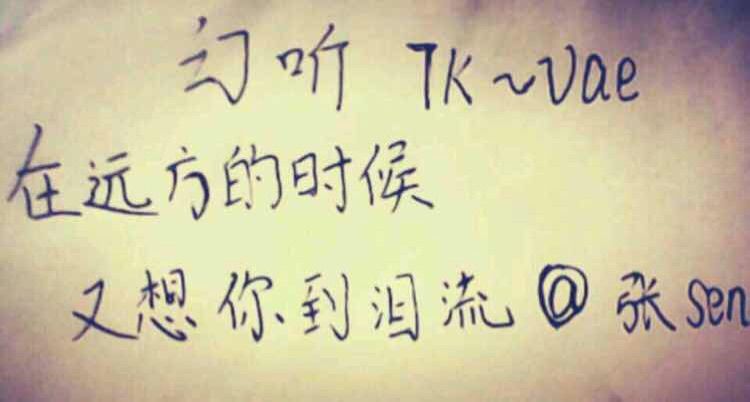 幻听 TK~Vae
在远方的时候
又想你到泪流 @ 张sen